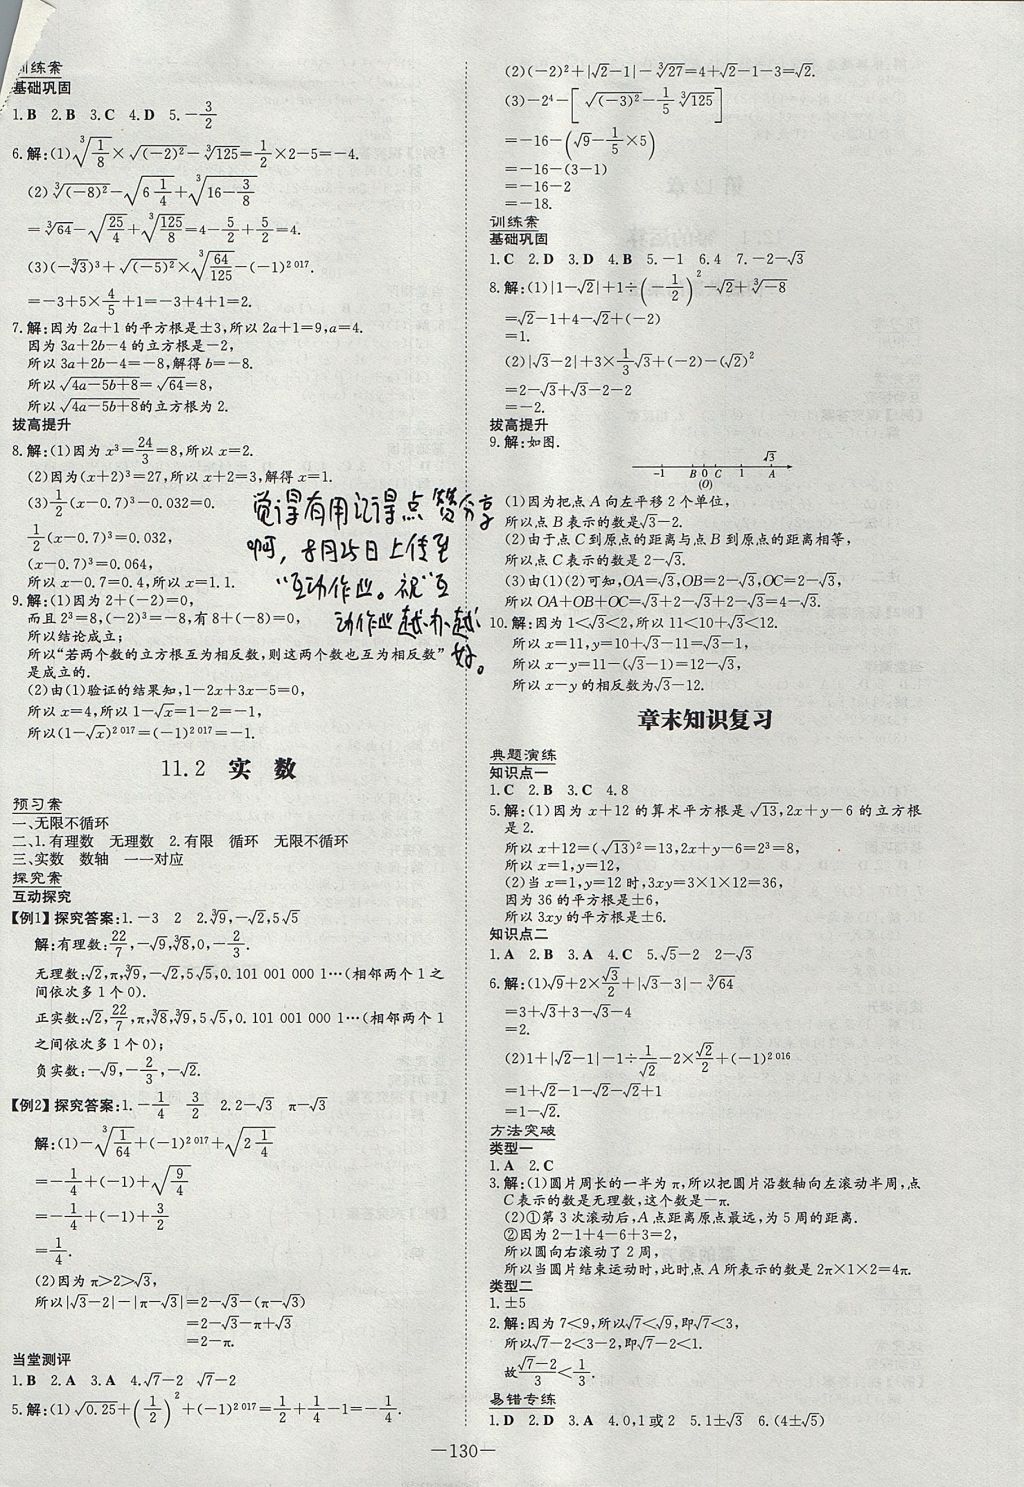 训练案
基础巩固
1.B 2.B 3.C 4.D 5.-3/2
6.解:(1)∛(1/8)×√(-2)²-∛125=1/2×2-5=-4.
(2)∛(-8)²-√(6 1/4)+∛(16-3/8)
=∛64-√(25/4)+∛(125/8)=4-5/2+5/2=4.
(3)(-∛3)³+√(-5)²×∛(64/125)-(-1)²⁰¹⁷.
=-3+5×4/5+1=-3+4+1=2.
7.解:因为2a+1的平方根是±3,所以2a+1=9,a=4.
因为3a+2b-4的立方根是-2,
所以3a+2b-4=-8,解得b=-8.
所以√(4a-5b+8)=√64=8,
所以√(4a-5b+8)的立方根为2.
拔高提升
8.解:(1)因为x³=24/3=8,所以x=2.
(2)因为(x+2)³=27,所以x+2=3,解得x=1.
(3)1/2(x-0.7)³-0.032=0.
1/2(x-0.7)³=0.032,
(x-0.7)³=0.064,
所以x-0.7=0.4,所以x=1.1.
9.解:(1)因为2+(-2)=0,
而且2³=8,(-2)³=-8,有8+(-8)=0,
所以结论成立;
所以“若两个数的立方根互为相反数,则这两个数也互为相反数”
是成立的.
(2)由(1)验证的结果知,1-2x+3x-5=0,
所以x=4,所以1-√x=1-2=-1,
所以(1-√x)²⁰¹⁷=(-1)²⁰¹⁷=-1.
觉得有用记得点赞分享
啊，8月25日上传至
“互动作业。祝“互
动作业越办越
好。
11.2 实 数
预习案
一、无限不循环
二、1.有理数 无理数 2.有限 循环 无限不循环
三、实数 数轴 一一对应
探究案
互动探究
【例1】探究答案:1.-3 2 2.∛9,-√2,5√5
解:有理数:22/7,-√9,∛8,0,-2/3.
无理数:√2,π,∛9,-√2,5√5,0.101 001 000 1…(相邻两个1之
间依次多1个0).
正实数:√2,22/7,π,∛8,∛9,5√5,0.101 001 000 1…(相邻两个1
之间依次多1个0);
负实数:-√9,-2/3,-√2.
【例2】探究答案:1.-1/4 3/2 2.2-√3 π-√3
解:(1)-∛(1/64)+(-1)²⁰¹⁷+√(2 1/4)
=-1/4+(-1)+√(9/4)
=-1/4+(-1)+3/2
=1/4.
(2)因为π>2>√3,
所以|√3-2|-|π-√3|=2-√3-(π-√3)
=2-√3-π+√3
=2-π.
当堂测评
1.B 2.A 3.A 4.√7-2 √7-2
5.解:(1)√0.25+(1/2)²+(-1)²⁰¹⁷=1/2+1/4-1=-1/4.
(2)(-2)²+|√2-1|-∛27=4+√2-1-3=√2.
(3)-2⁴-[√(-3)²-1/5 ∛125]
=-16-(√9-1/5×5)
=-16-(3-1)
=-16-2
=-18.
训练案
基础巩固
1.C 2.D 3.D 4.B 5.-1 6.4 7.-2-√3
8.解:(1)|1-√2|+1÷(-1/2)²-√2+∛-8
=√2-1+4-√2+(-2)
=1.
(2)|√3-2|+3×1/3√3+(-2)-(√2)²
=2-√3+√3-2-2
=-2.
拔高提升
9.解:如图.
√3
-1 B 0 C 1 A
(O)
(1)因为把点A向左平移2个单位,
所以点B表示的数是√3-2.
(2)由于点C到原点的距离与点B到原点的距离相等,
所以点C表示的数是2-√3.
(3)由(1)(2)可知,OA=√3,OB=2-√3,OC=2-√3,
所以OA+OB+OC=√3+2-√3+2-√3=4-√3.
10.解:因为1<√3<2,所以11<10+√3<12.
所以x=11,y=10+√3-11=√3-1,
所以x-y=11-(√3-1)=12-√3,
所以x-y的相反数为√3-12.
章末知识复习
典题演练
知识点一
1.C 2.B 3.C 4.8
5.解:(1)因为x+12的算术平方根是√13,2x+y-6的立方根
是2.
所以x+12=(√13)²=13,2x+y-6=2³=8,
所以x=1,y=12,
(2)当x=1,y=12时,3xy=3×1×12=36,
因为36的平方根是±6,
所以3xy的平方根是±6.
知识点二
1.A 2.B 3.A 4.C 5.√5-2 2-√3
6.解:(1)√9+2×√3/2+|√3-3|-∛64
=3+√3+3-√3-4
=2.
(2)1+|√2-1|-1÷1/√2-2×√2/2+(-1)²⁰¹⁶
=1+√2-1-√2-√2+1
=1-√2.
方法突破
类型一
1.A 2.C
3.解:(1)圆片周长的一半为π,所以把圆片沿数轴向左滚动半周,点
C表示的数是无理数,这个数是-π.
(2)①第3次滚动后,A点距离原点最远,为5周的距离.
②因为2-1+4-6+3=2,
所以圆向右滚动了2周,
所以当圆片结束运动时,此时点A所表示的数是2π×1×2=4π.
类型二
1.±5
2.解:因为7<9,所以√7<√9,即√7<3,
所以√7-2<3-2,即√7-2<1.
故(√7-2)/3<1/3.
易错专练
1.D 2.D 3.A 4.0,1或2 5.1±√3 6.(4±√5)
—130—